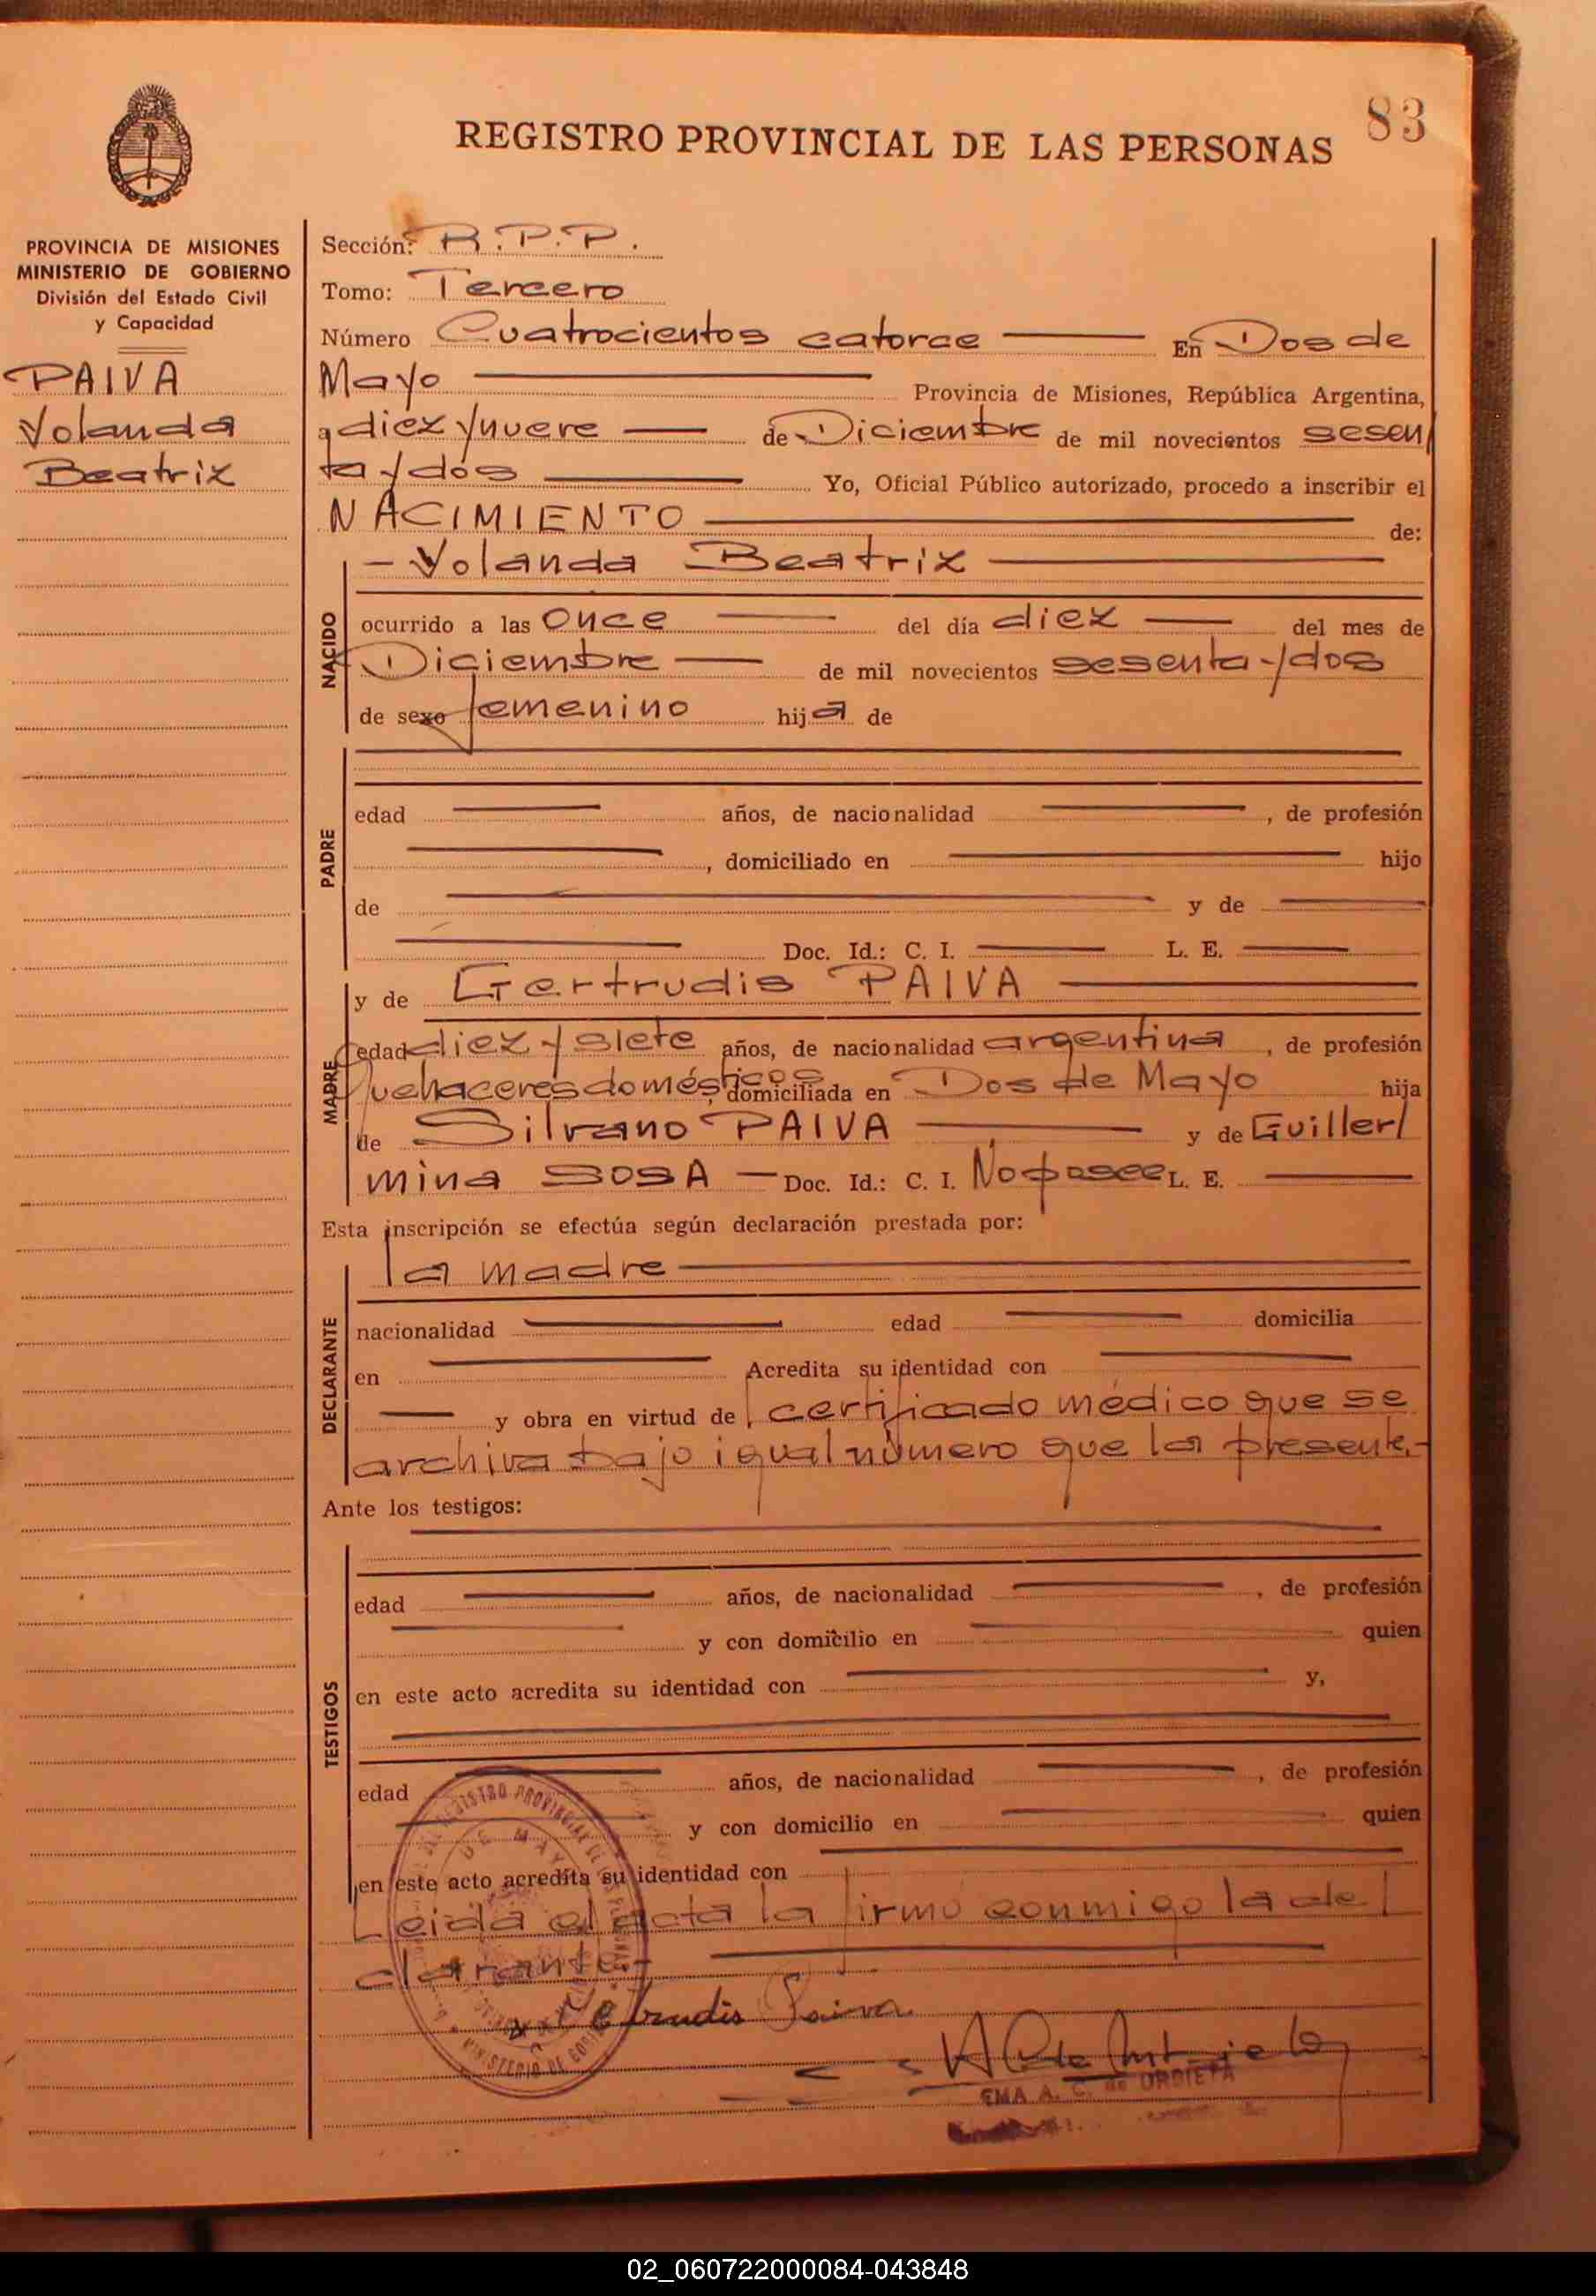 83
REGISTRO PROVINCIAL DE LAS PERSONAS
PROVINCIA DE MISIONES
MINISTERIO DE GOBIERNO
División del Estado Civil
y Capacidad
PAIVA
Yolanda
Beatriz
Sección: R.P.P.
Tomo: Tercero
Número Cuatrocientos catorce En Dos de
Mayo Provincia de Misiones, República Argentina,
a diez y nueve de Diciembre de mil novecientos sesen
ta y dós Yo, Oficial Público autorizado, procedo a inscribir el
NACIMIENTO de:
NACIDO
- Yolanda Beatriz
ocurrido a las once del día diez del mes de
Diciembre de mil novecientos sesenta y dos
de sexo femenino hija de
PADRE
edad años, de nacionalidad , de profesión
, domiciliado en hijo
de y de
Doc. Id.: C. I. L. E.
MADRE
y de Gertrudis PAIVA
edad diez y siete años, de nacionalidad argentina , de profesión
Quehaceres domésticos, domiciliada en Dos de Mayo hija
de Silvano PAIVA y de Guiller
mina SOSA - Doc. Id.: C. I. No posee L. E.
Esta inscripción se efectúa según declaración prestada por:
DECLARANTE
la madre
nacionalidad edad domicilia
en Acredita su identidad con
y obra en virtud de certificado médico que se
archiva bajo igual número que la presente.-
Ante los testigos:
TESTIGOS
edad años, de nacionalidad , de profesión
y con domicilio en quien
en este acto acredita su identidad con y,
edad años, de nacionalidad , de profesión
y con domicilio en quien
en este acto acredita su identidad con
Leída el acta la firmó conmigo la de
clarante.-
Paiva
EMA A. C. de URDIETA
02_060722000084-043848